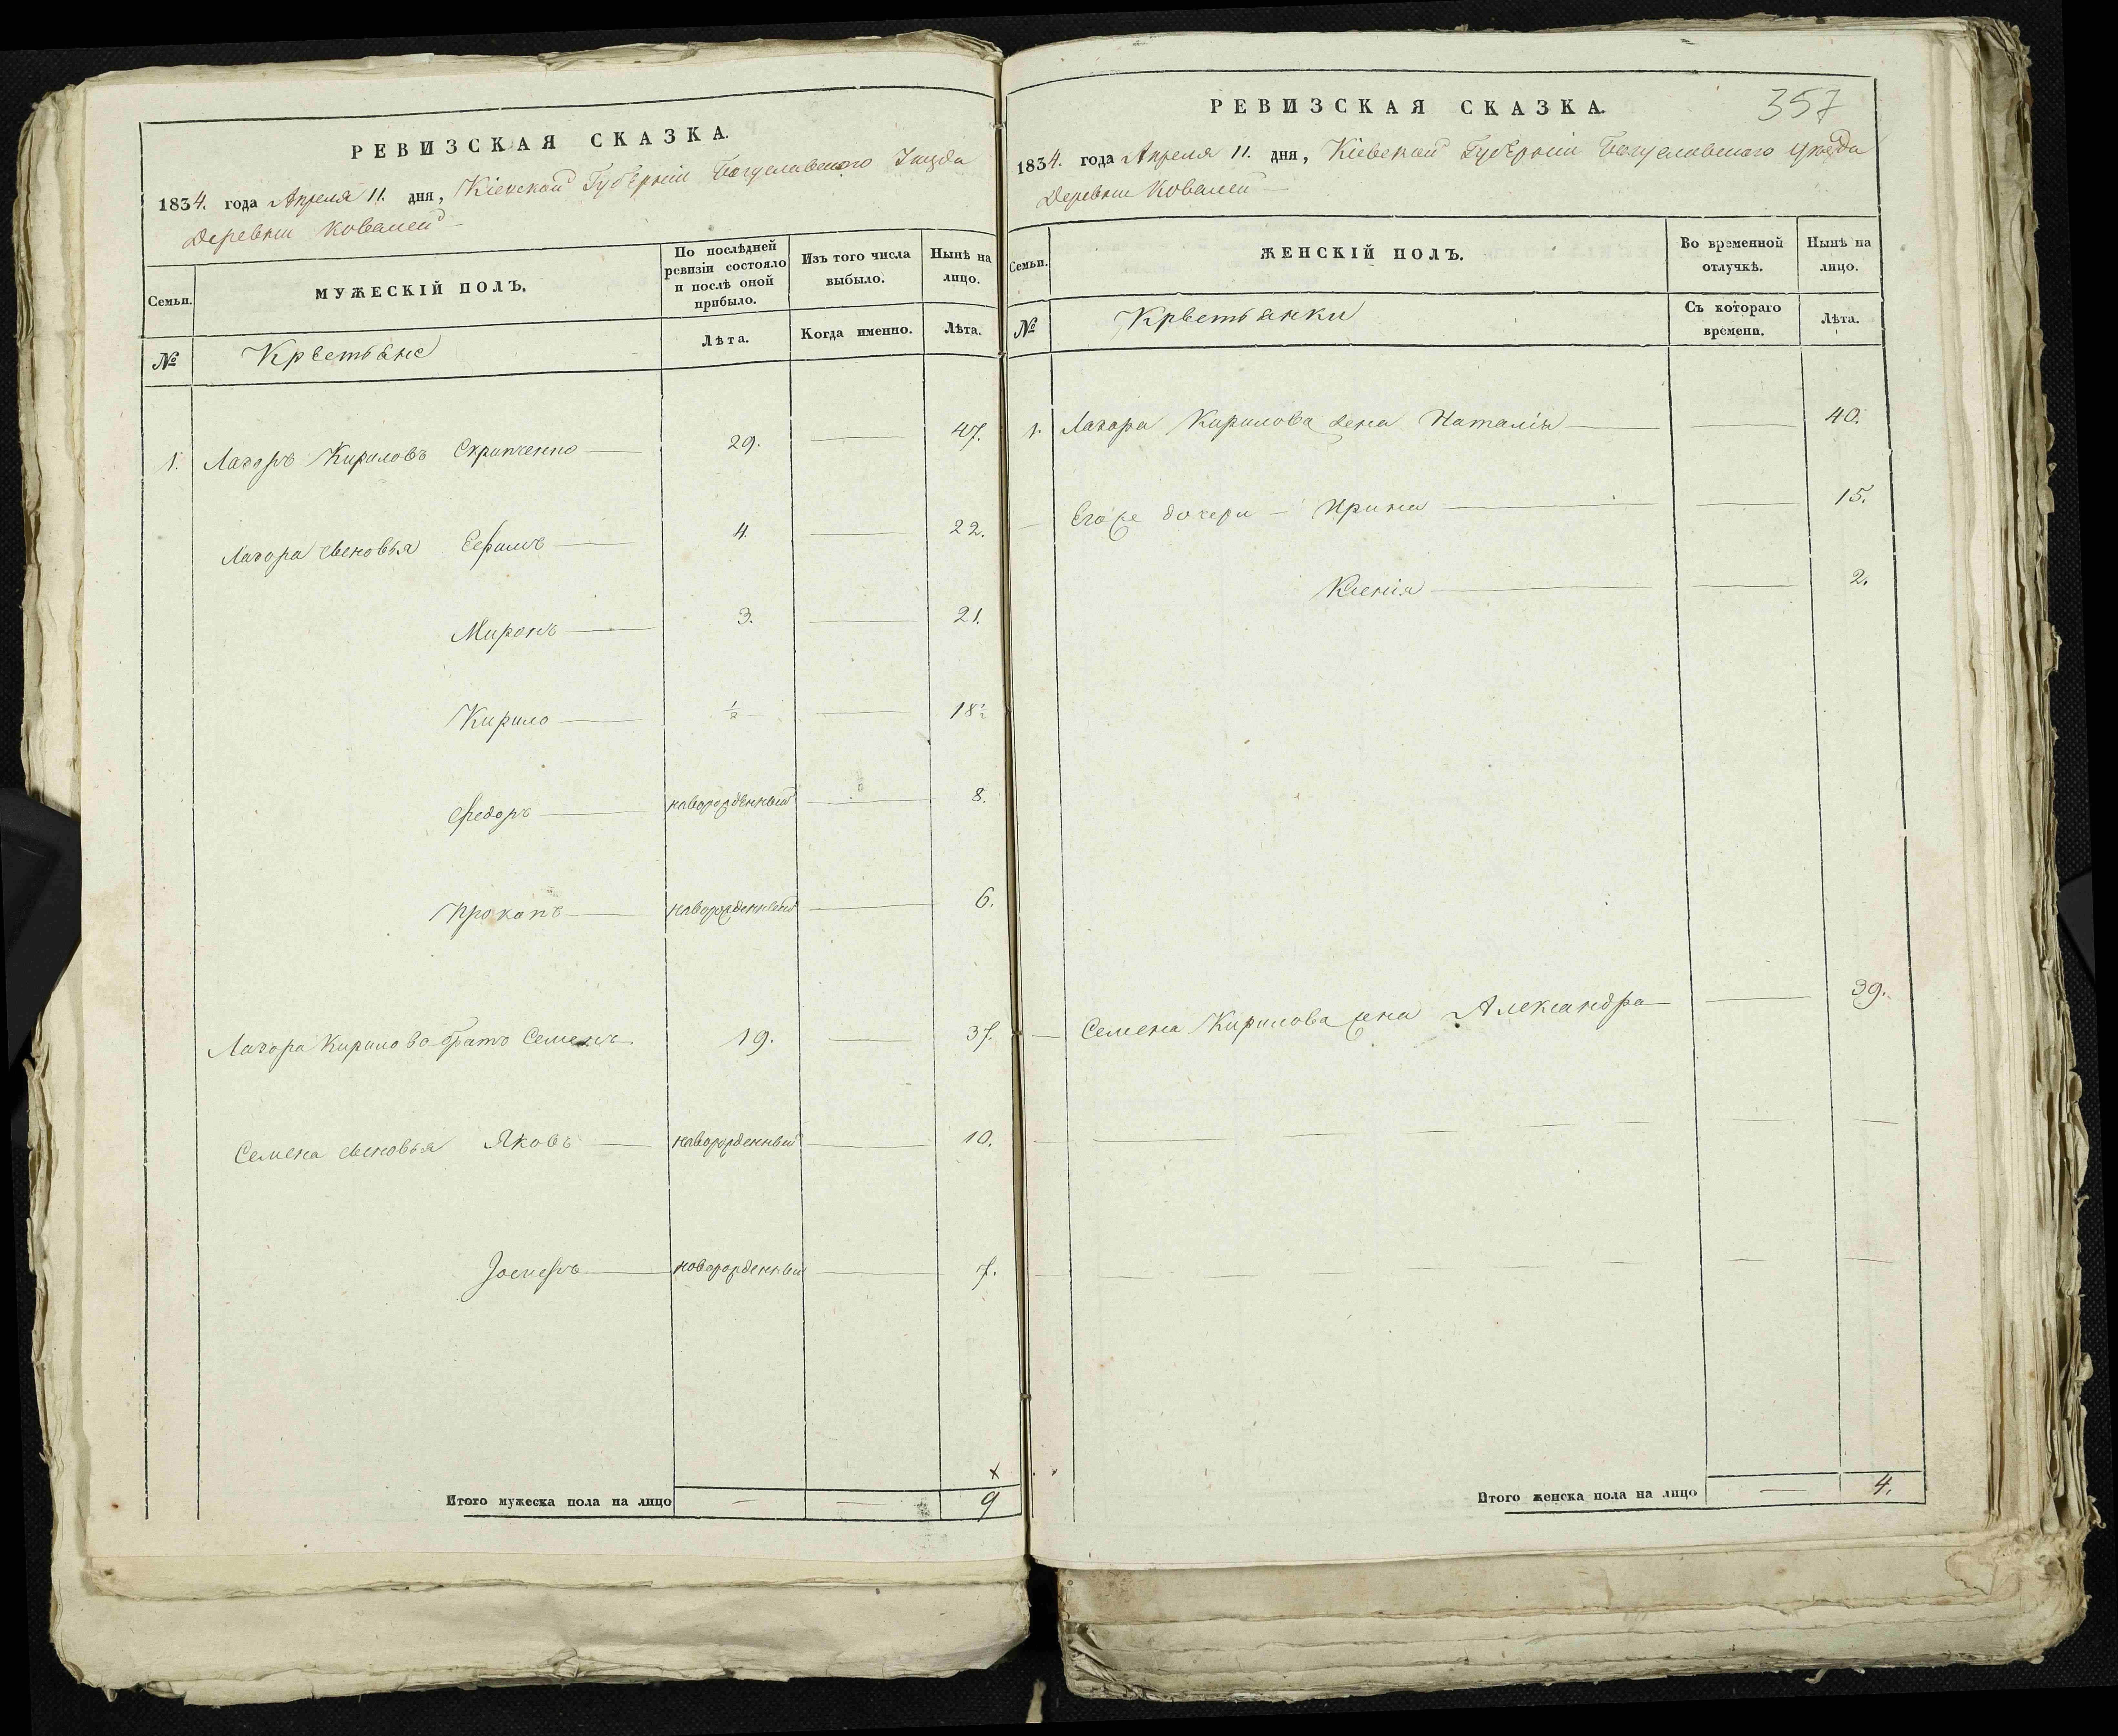 РЕВИЗСКАЯ СКАЗКА.
1834. года Апреля 11. дня, Кіевской Губерніи Богуславского Уезда
Деревни Ковалей
Семьи. МУЖЕСКІЙ ПОЛЪ. По послѣдней ревизіи состояло и послѣ оной прибыло. Изъ того числа выбыло. Нынѣ на лицо.
№ Крестьяне Лѣта. Когда именно. Лѣта.
1. Лазоръ Кириловъ 29. 47.
Лазора сыновья Ефимъ 4. 22.
Миронъ 3. 21.
Кирило ½ 18½
Федоръ новорожденный 8.
Прокопъ новорожденный 6.
Лазора Кирилова братъ Семенъ 19. 37.
Семена сыновья Яковъ новорожденный 10.
Іосифъ новорожденный 7.
х
Итого мужеска пола на лицо 9
РЕВИЗСКАЯ СКАЗКА. 357
1834. года Апреля 11. дня, Кіевской Губерніи Богуславского уезда
Деревни Ковалей
Семьи. ЖЕНСКІЙ ПОЛЪ. Во временной отлучкѣ. Нынѣ на лицо.
№ Крестьянки Съ котораго времени. Лѣта.
1. Лазора Кирилова жена Наталія 40.
Его же дочери Ирина 15.
Ксенія 2.
Семена Кирилова жена Александра 39.
Итого женска пола на лицо 4.